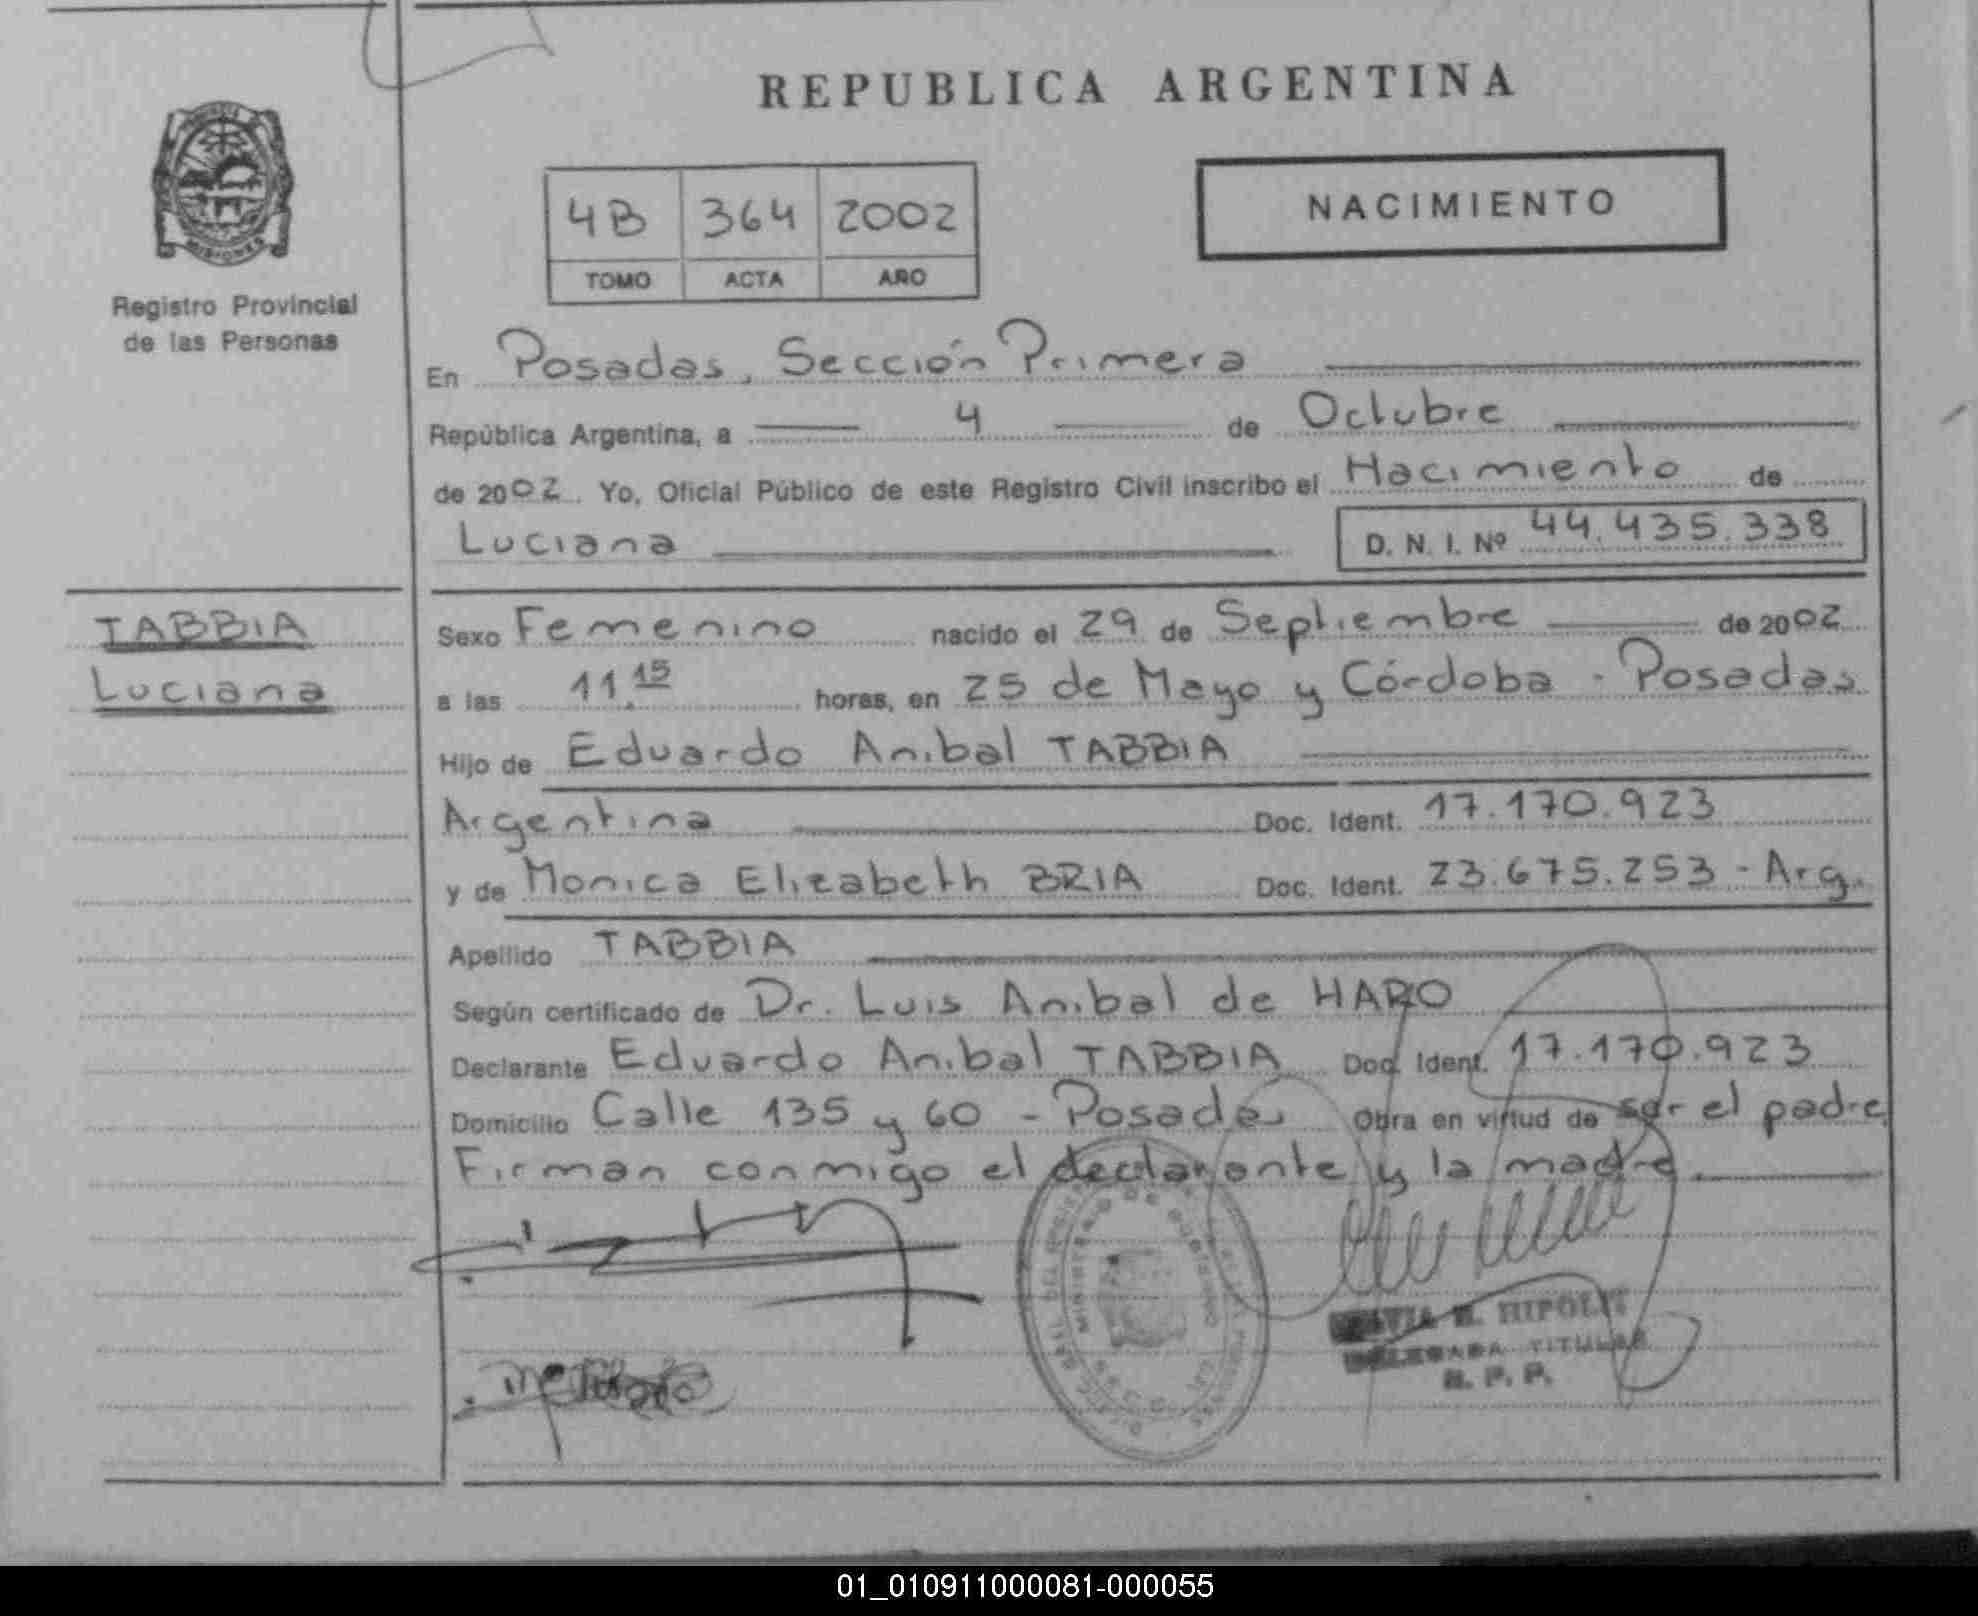 REPUBLICA ARGENTINA
MISIONES
Registro Provincial
de las Personas
4B 364 2002
TOMO ACTA AÑO
NACIMIENTO
En Posadas, Sección Primera
República Argentina, a 4 de Octubre
de 2002. Yo, Oficial Público de este Registro Civil inscribo el Nacimiento de
Luciana D. N. I. Nº 44.435.338
TABBIA
Luciana
Sexo Femenino nacido el 29 de Septiembre de 2002
a las 11.15 horas, en 25 de Mayo y Córdoba - Posadas
Hijo de Eduardo Anibal TABBIA
Argentina Doc. Ident. 17.170.923
y de Monica Elizabeth BRIA Doc. Ident. 23.675.253 - Arg.
Apellido TABBIA
Según certificado de Dr. Luis Anibal de HARO
Declarante Eduardo Anibal TABBIA Doc. Ident. 17.170.923
Domicilio Calle 135 y 60 - Posadas Obra en virtud de ser el padre
Firman conmigo el declarante y la madre
MINISTERIO DE GOBIERNO
H. HIPOLIT
DELEGADA TITULAR
R. P. P.
01_010911000081-000055